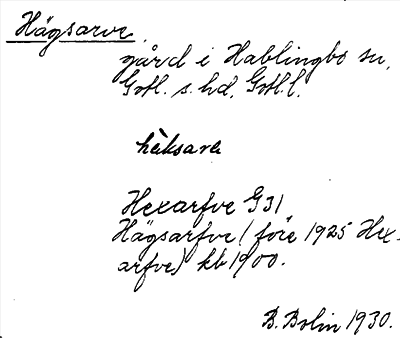 Hägsarve.
gård i Hablingbo sn,
Gotl. s. hd, Gotl. l.
hèksarve
Hexarfve G31
Hägsarfve (före 1925 Hex-
arfve) kb 1900.
B. Bolin 1930.